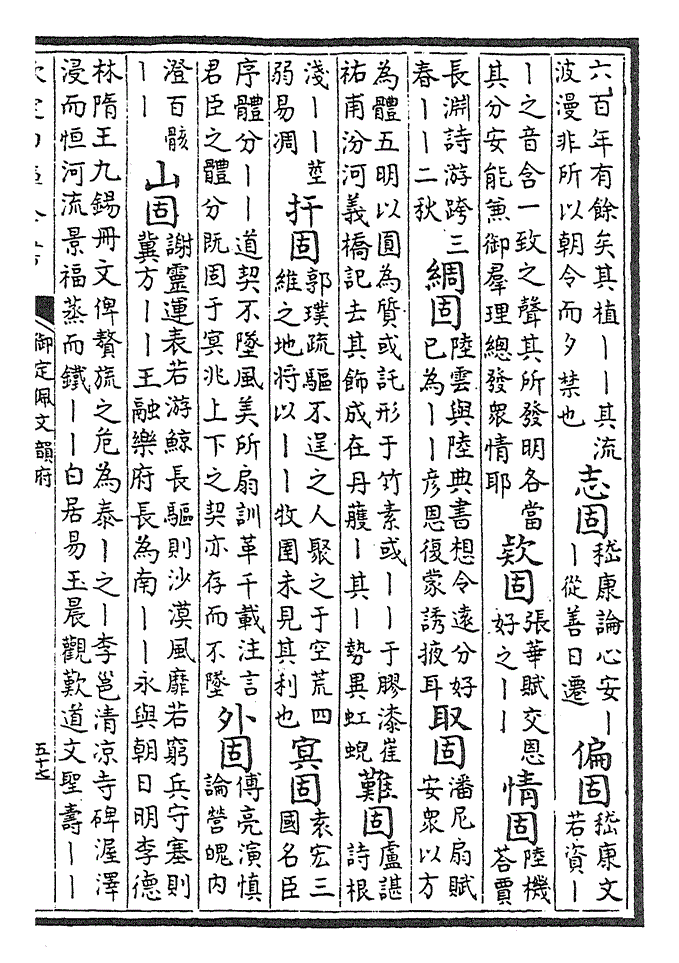 六百年有餘矣其植｜｜其流
波漫非所以朝令而夕禁也
志固
嵇康論心安｜
｜從善日遷
偏固
嵇康文
若資｜
｜之音含一致之聲其所發明各當
其分安能兼御羣理總發衆情耶
欵固
張華賦交恩
好之｜｜
情固
陸機
荅賈
長淵詩游跨三
春｜｜二秋
綢固
陸雲與陸典書想令遠分好
已為｜｜彦恩復蒙誘掖耳
取固
潘尼扇賦
安衆以方
為體五明以圓為質或託形于竹素或｜｜于膠漆崔
祐甫汾河義橋記去其飾成在丹雘｜其｜勢異虹蜺
難固
盧諶
詩根
淺｜｜莖
弱易凋
扞固
郭璞疏驅不逞之人聚之于空荒四
維之地将以｜｜牧圉未見其利也
冥固
袁宏三
國名臣
序體分｜｜道契不墜風美所扇訓革千載注言
君臣之體分既固于冥兆上下之契亦存而不墜
外固
傅亮演慎
論營魄内
澄百骸
｜｜
山固
謝靈運表若游鯨長驅則沙漠風靡若窮兵守塞則
冀方｜｜王融樂府長為南｜｜永與朝日明李德
林隋王九錫冊文俾贅旒之危為泰｜之｜李邕清凉寺碑渥澤
浸而恒河流景福蒸而鐵｜｜白居易王晨觀歎道文聖壽｜｜
御定佩文韻府
五十七